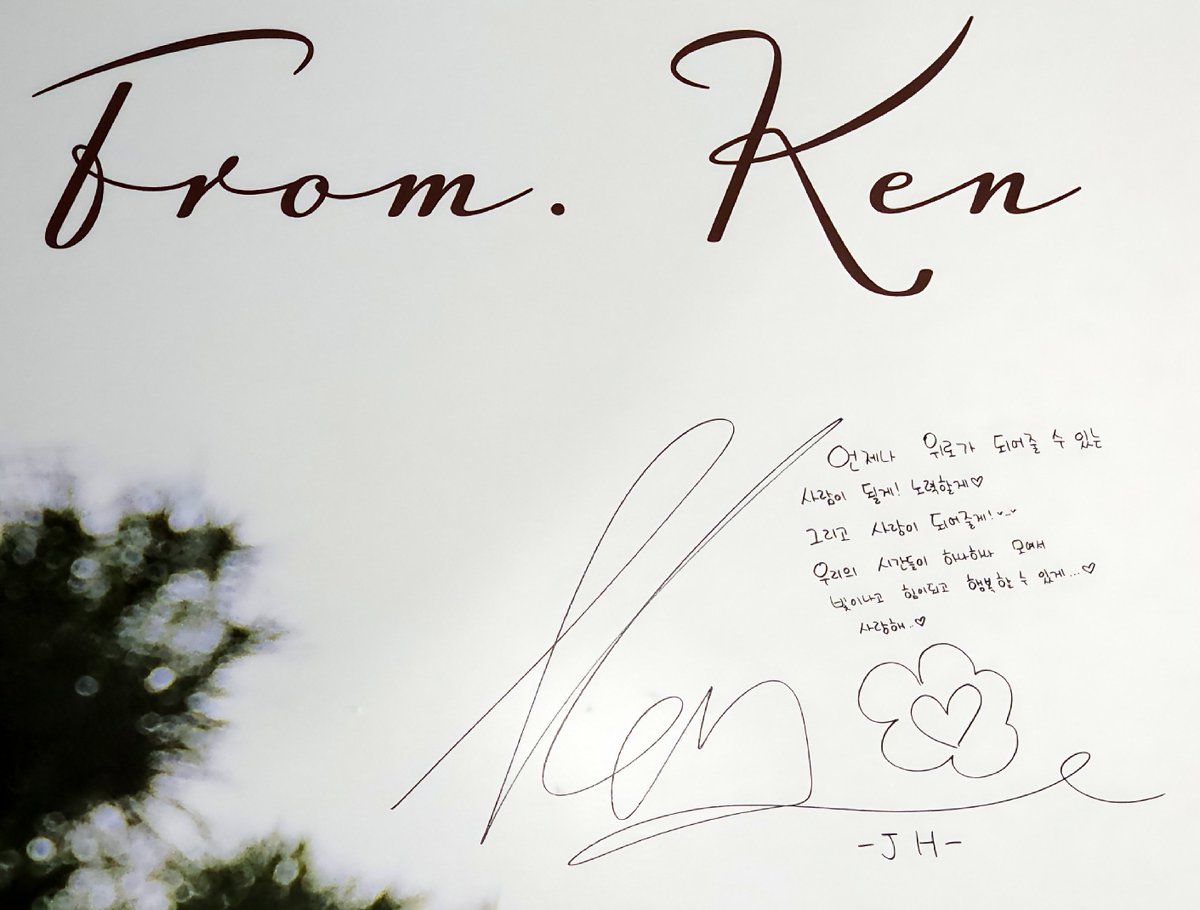 From. Ken
언제나 위로가 되어줄 수 있는
사람이 될게! 노력할게♡
그리고 사랑이 되어줄게!
우리의 시간들이 하나하나 모여서
빛이나고 힘이되고 행복할 수 있게...♡
사랑해..♡
Ken
-JH-